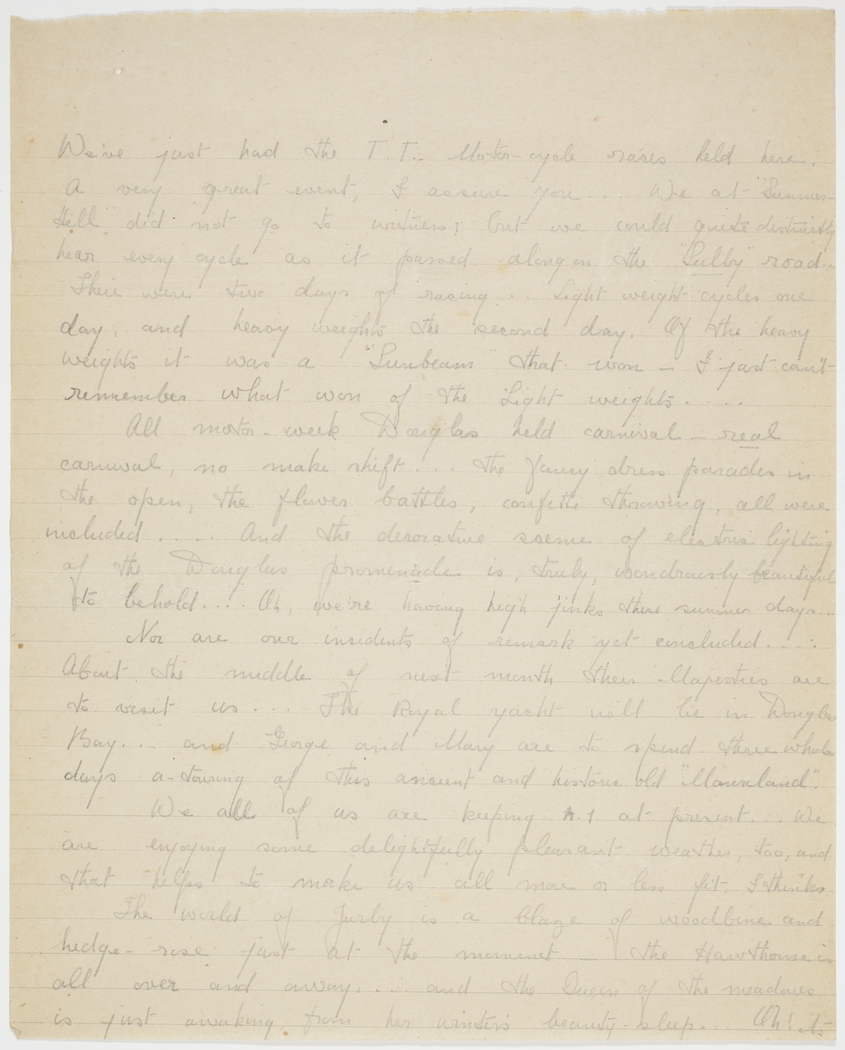 We've just had the T.T. Motor-cycle races held here.
A very great event, I assure you... We at "Summer-
Hill" did not go to witness; but we could quite distinctly
hear every cycle as it passed along on the "Sulby" road...
Their were two days of racing... Light weight cycles one
day, and heavy weights the second day. Of the heavy
weights it was a "Sunbeam" that won - I just can't
remember what won of the Light weights....
All motor-week Douglas held carnival - real
carnival, no make shift... The fancy dress parades in
the open, the flower battles, confetti throwing, all were
included.... And the decorative scene of electric lighting
of the Douglas promenade is, truly, wondrously beautiful
to behold.... Oh, we're having high jinks these summer days...
Nor are our incidents of remark yet concluded....
About the middle of next month their Majesties are
to visit us... The Royal yacht will lie in Douglas
Bay... and George and Mary are to spend three whole
days a-touring of this ancient and historic old "Manxland".
We all of us are keeping A.1 at present... We
are enjoying some delightfully pleasant weather, too, and
that helps to make us all more or less fit, I think
The world of Jurby is a blaze of woodbine and
hedge-rose just at the moment - the Hawthorne is
all over and away... and the Queen of the meadows
is just awaking from her winter's beauty-sleep... Oh! it's